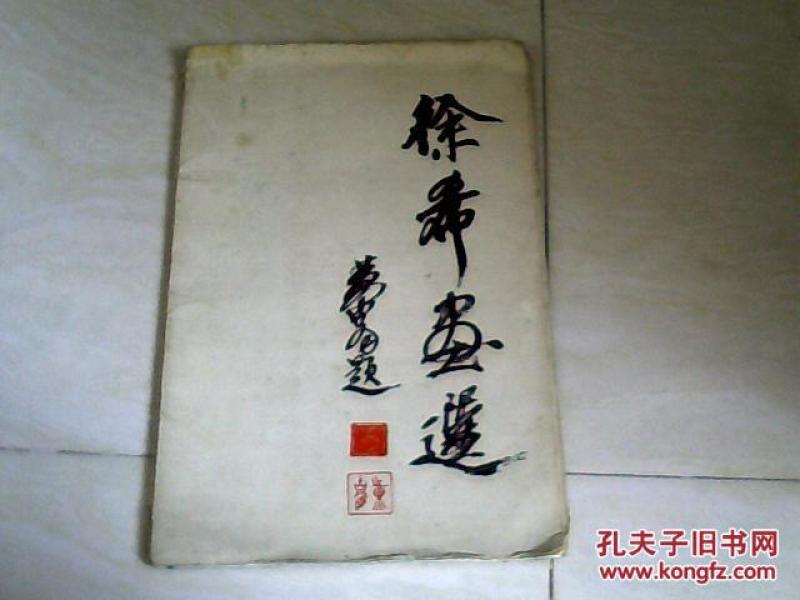 徐希画選
黄胄題
孔夫子旧书网
www.kongfz.com